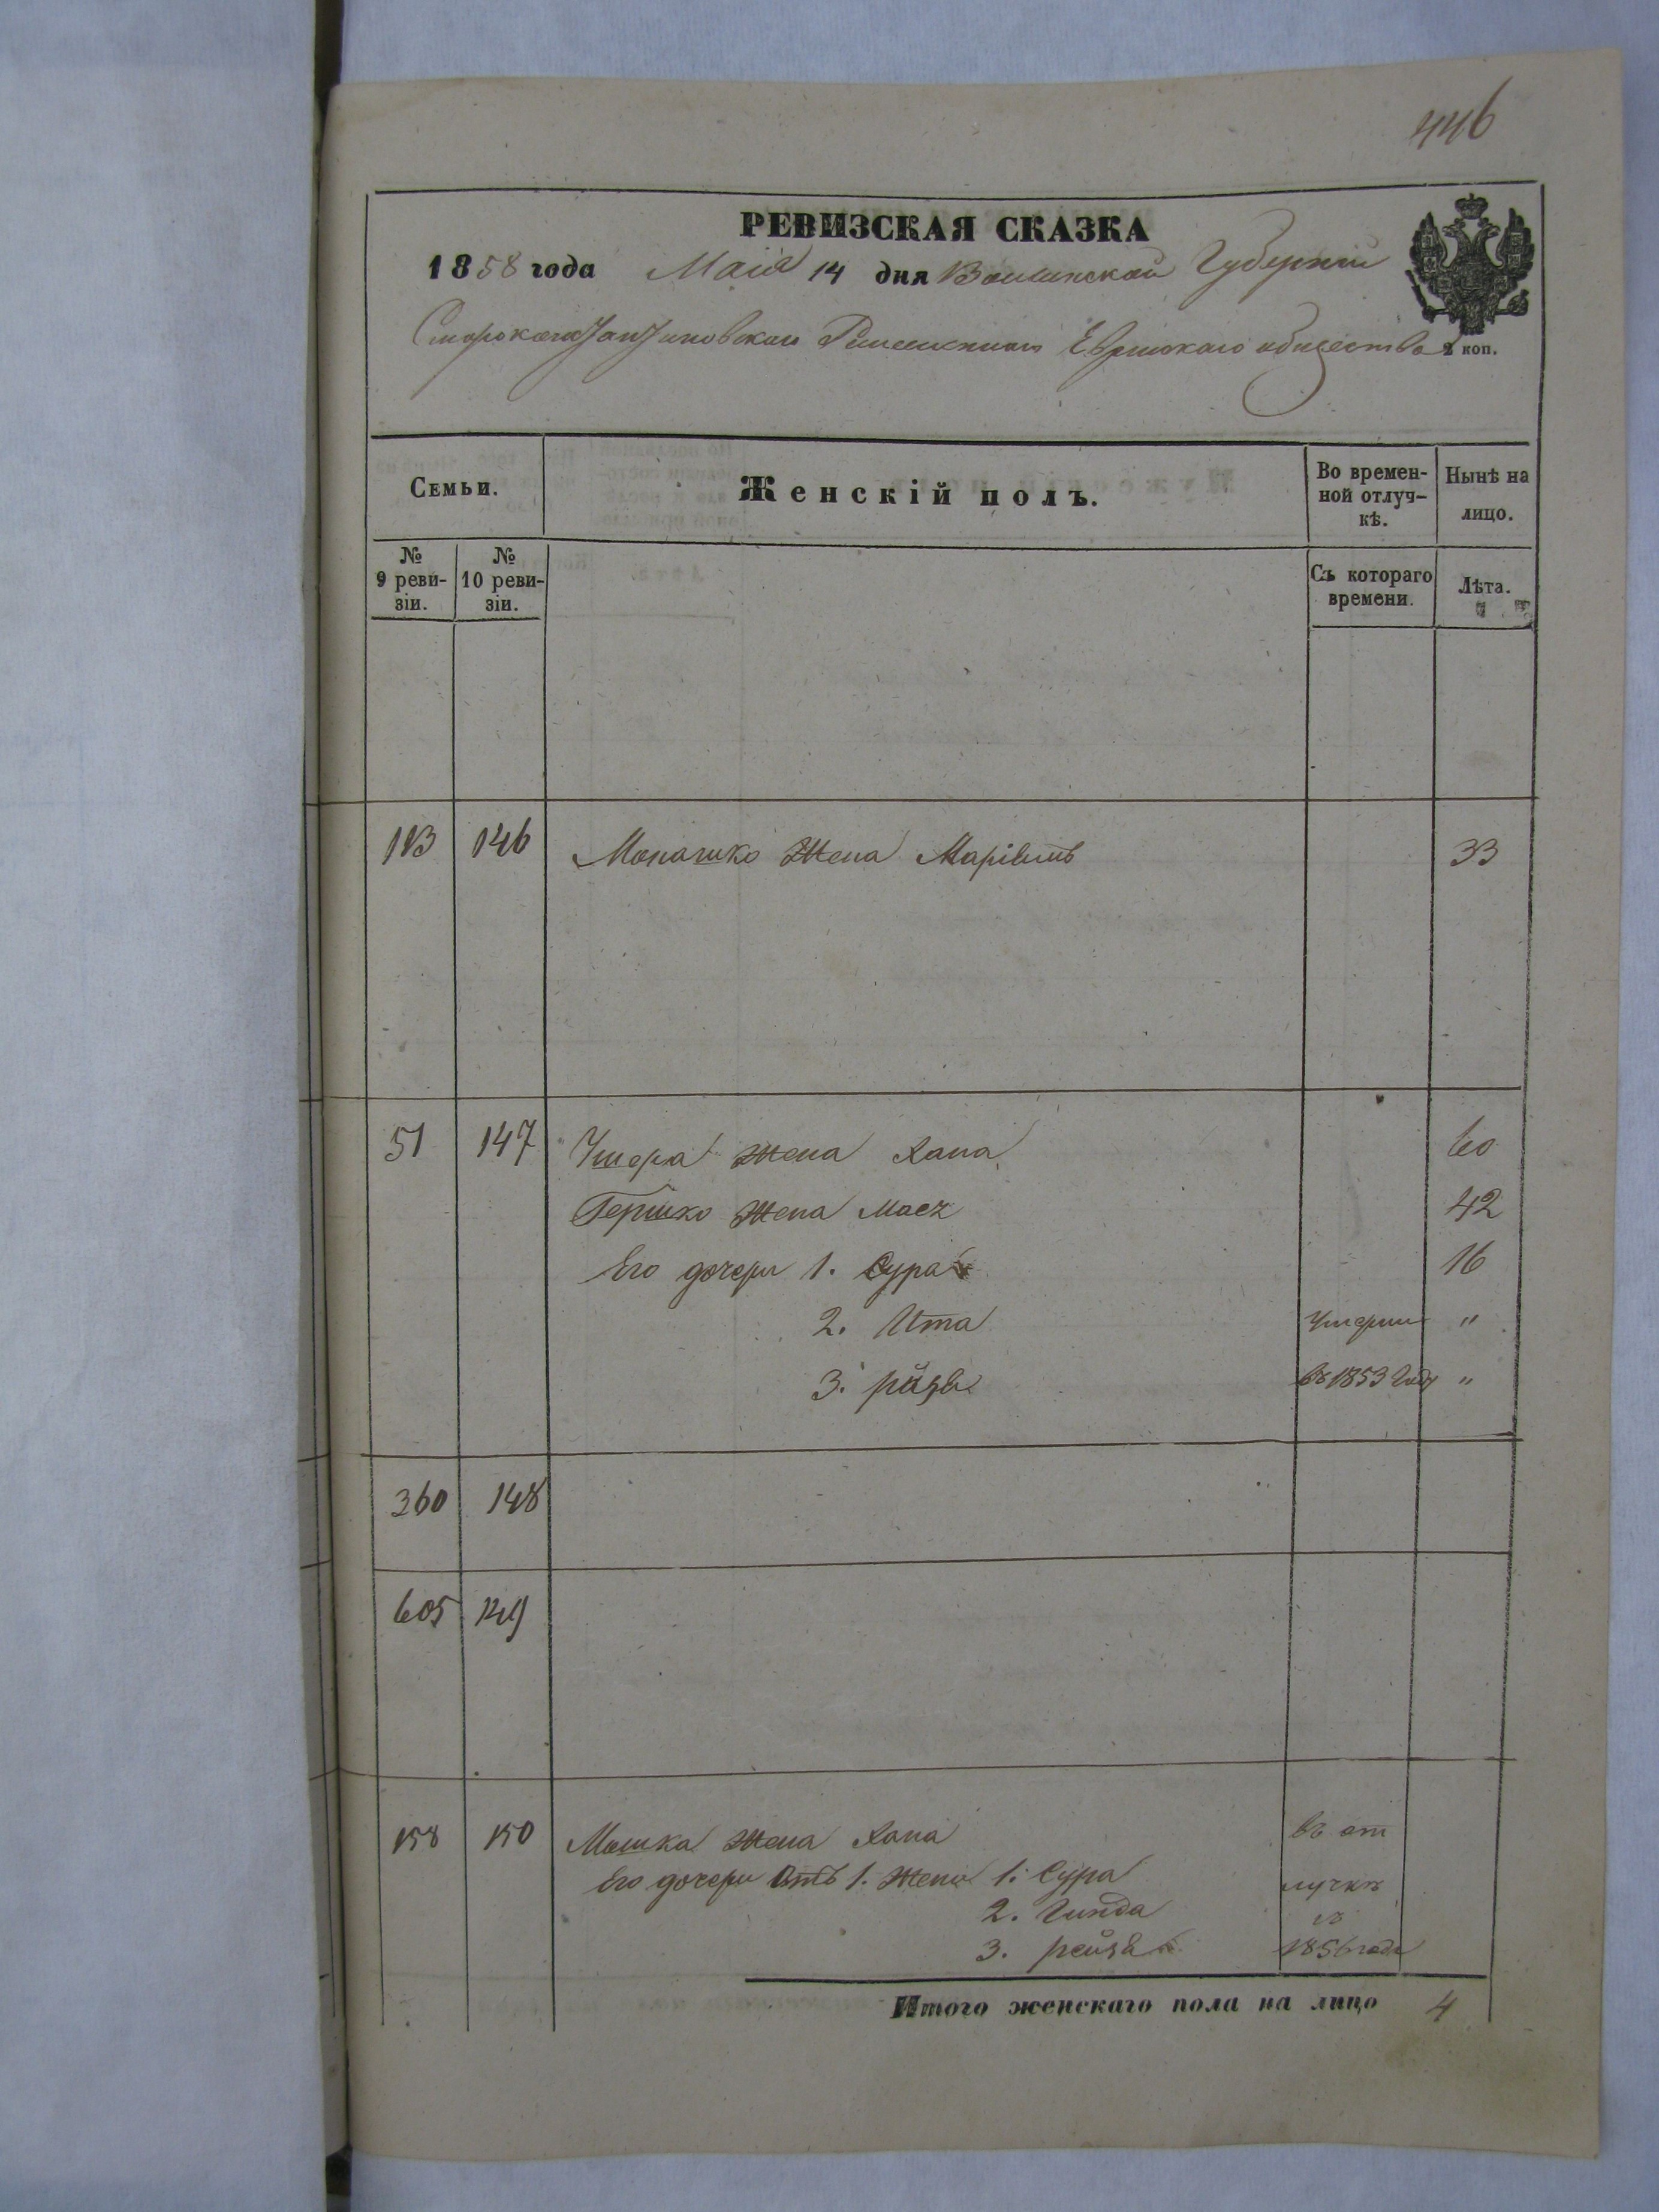 446
РЕВИЗСКАЯ СКАЗКА
1858 года Маія 14 дня Волынской Губерніи
Староконстантиновскаго Еврейскаго общества 2 коп.
Семьи. Женскій полъ. Во временной отлучкѣ. Нынѣ на лицо.
№ 9 ревизіи. № 10 ревизіи. Съ котораго времени. Лѣта.
113 146 Монашко Жена Маріымъ 33
51 147 Умера Жена Хана 60
Гершко Жена Маех 42
Его дочери 1. Сура 16
2. Ита умерли "
3. рӑзя въ 1853 Году "
360 148
605 149
158 150 Мошка Жена Хана въ от
Его дочери Отъ 1. Жены 1. Сура лучкѣ
2. Гинда съ
3. рейзя 1856 года
Итого женскаго пола на лицо 4